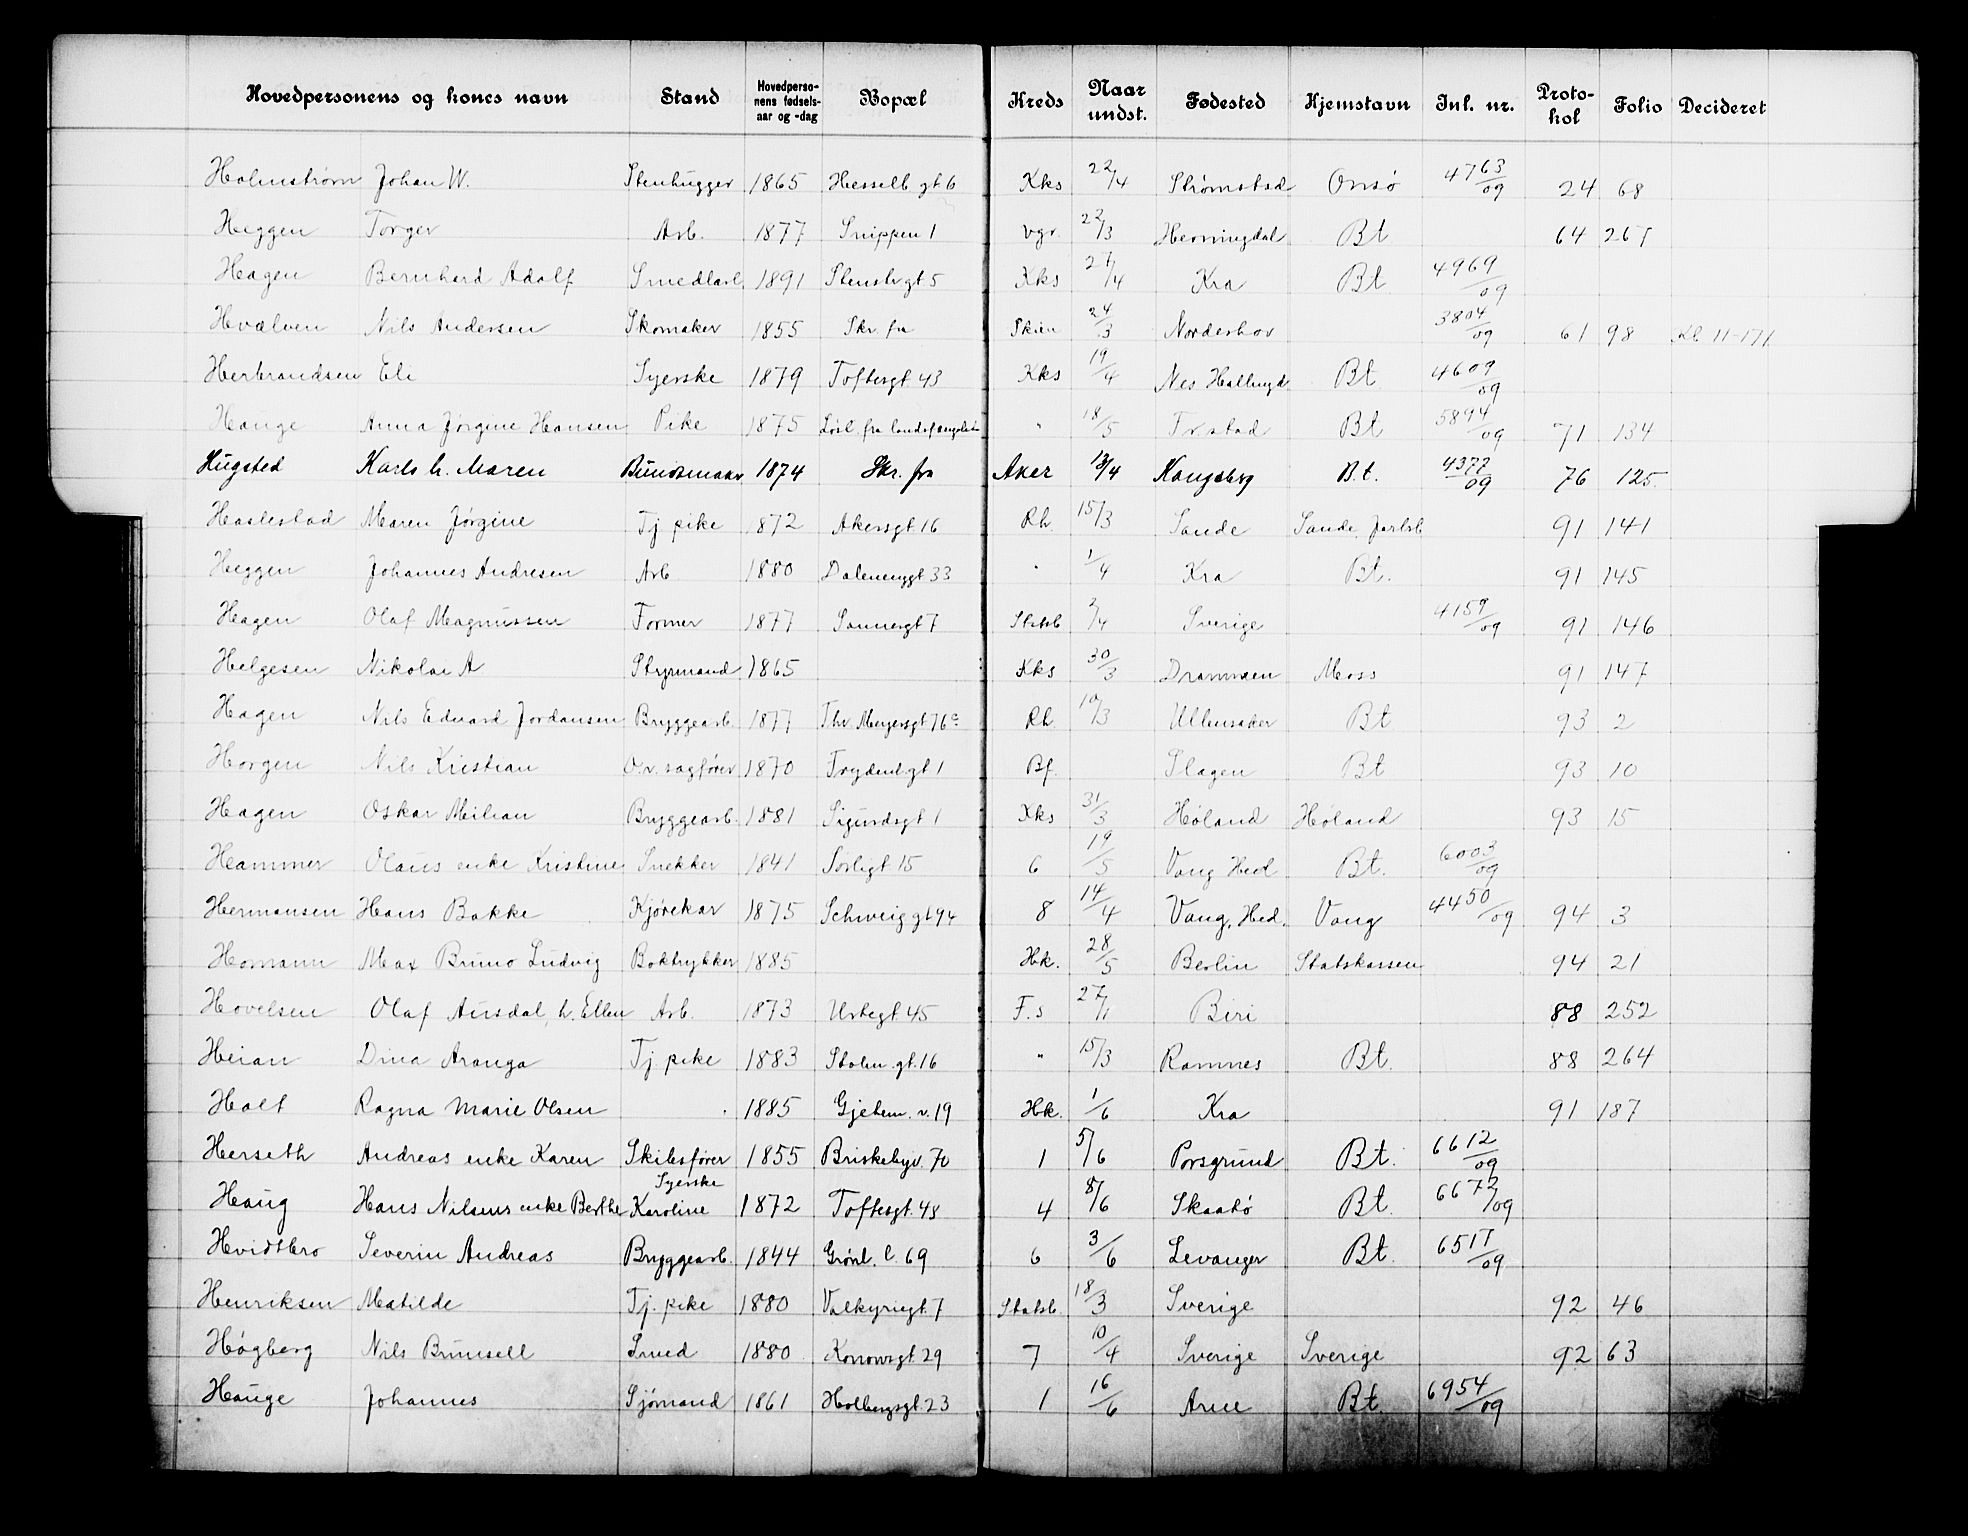 Hovedpersonens og kones navn Stand Hovedperso-nens fødsels-aar og -dag Bopæl Kreds Naar undst. Fødested Hjemstavn Inl. nr. Proto-kol Folio Decideret
Holmstrøm Johan W. Stenhugger 1865 Hesselb gt 6 Kks 22/4 Strømstad Onsø 4763/09 24 68
Heggen Torger Arb. 1877 Snippen 1 vgr. 22/3 Bt 64 267
Hagen Bernhard Adolf Smedlærl 1891 Stensbgt 5 Kks 27/4 Kra Bt 4969/09
Hvælven Nils Andersen Skomaker 1855 Skr. fra Skien 24/3 Norderhov 3804/09 61 98 Kl 11-171
Herbrandsen Eli Syerske 1879 Toftesgt 43 Kks 19/4 Nes Hallingd Bt 4609/09
Hauge Anna Jørgine Hansen Pike 1875 Løsl. fra landsfængslet " 18/5 Bt 5894/09 71 134
Hugsted Karls h. Maren Buntmaker 1874 Skr. fra Aker 13/4 Kongsberg B.t. 4377/09 76 125
Haslestad Maren Jørgine Tj pike 1872 Akersgt 16 Rh. 15/3 Sande Sande, Jarlsb 91 141
Heggen Johannes Andresen Arb 1880 Dalenenggt 33 " 1/4 Kra Bt. 91 145
Hagen Olaf Magnussen Former 1877 Sannergt 7 Statsb 2/4 Sverige 4159/09 91 146
Helgesen Nikolai A Styrmand 1865 Kks 30/3 Drammen Moss 91 147
Hagen Nils Edvard Jordansen Bryggearb. 1877 Thv. Meyersgt 76c Rh 10/3 Ullensaker Bt 93 2
Horgen Nils Kristian O.r. sagfører 1870 Frydenl.gt 1 Bf. Slagen Bt 93 10
Hagen Oskar Milian Bryggearb. 1881 Sigurdsgt 1 Kks 31/3 Høland Høland 93 15
Hammer Olaus enke Kristine Snekker 1841 Sørligt 15 6 19/5 Vang Hed Bt. 6003/09
Hermansen Hans Bakke Kjørekar 1875 Schweiggt 94 8 14/4 Vang, Hed. Vang 4450/09 94 3
Homann Max Bruno Ludvig Boktrykker 1885 Hk. 28/5 Berlin Statskassen 94 21
Hovelsen Olaf Aursdal, h. Ellen Arb. 1873 Urtegt. 45 F.s 27/1 Biri 88 252
Heian Dina Aranga Tj. pike 1883 Stolm.gt. 16 " 15/3 Ramnes Bt. 88 264
Holt Ragna Marie Olsen 1885 Gjetem. v. 19 Hk. 1/6 Kra 91 187
Herseth Andreas enke Karen Skibsfører 1855 Briskebyv. 70 1 5/6 Porsgrund Bt. 6612/09
Haug Hans Nilsens enke Berthe Karoline Syerske 1872 Toftesgt. 48 4 8/6 Skaatø Bt. 6672/09
Hvidtbro Severin Andreas Bryggearb. 1844 Grønl. l. 69 6 3/6 Levanger Bt. 6517/09
Henriksen Matilde Tj. pike 1880 Valkyriegt. 7 Statsb. 18/3 Sverige 92 46
Høgberg Nils Brunsell Smed 1880 Konowsgt. 29 7 10/4 Sverige Sverige 92 63
Hauge Johannes Sjømand 1861 Holbergsgt. 23 1 16/6 Arne Bt. 6954/09